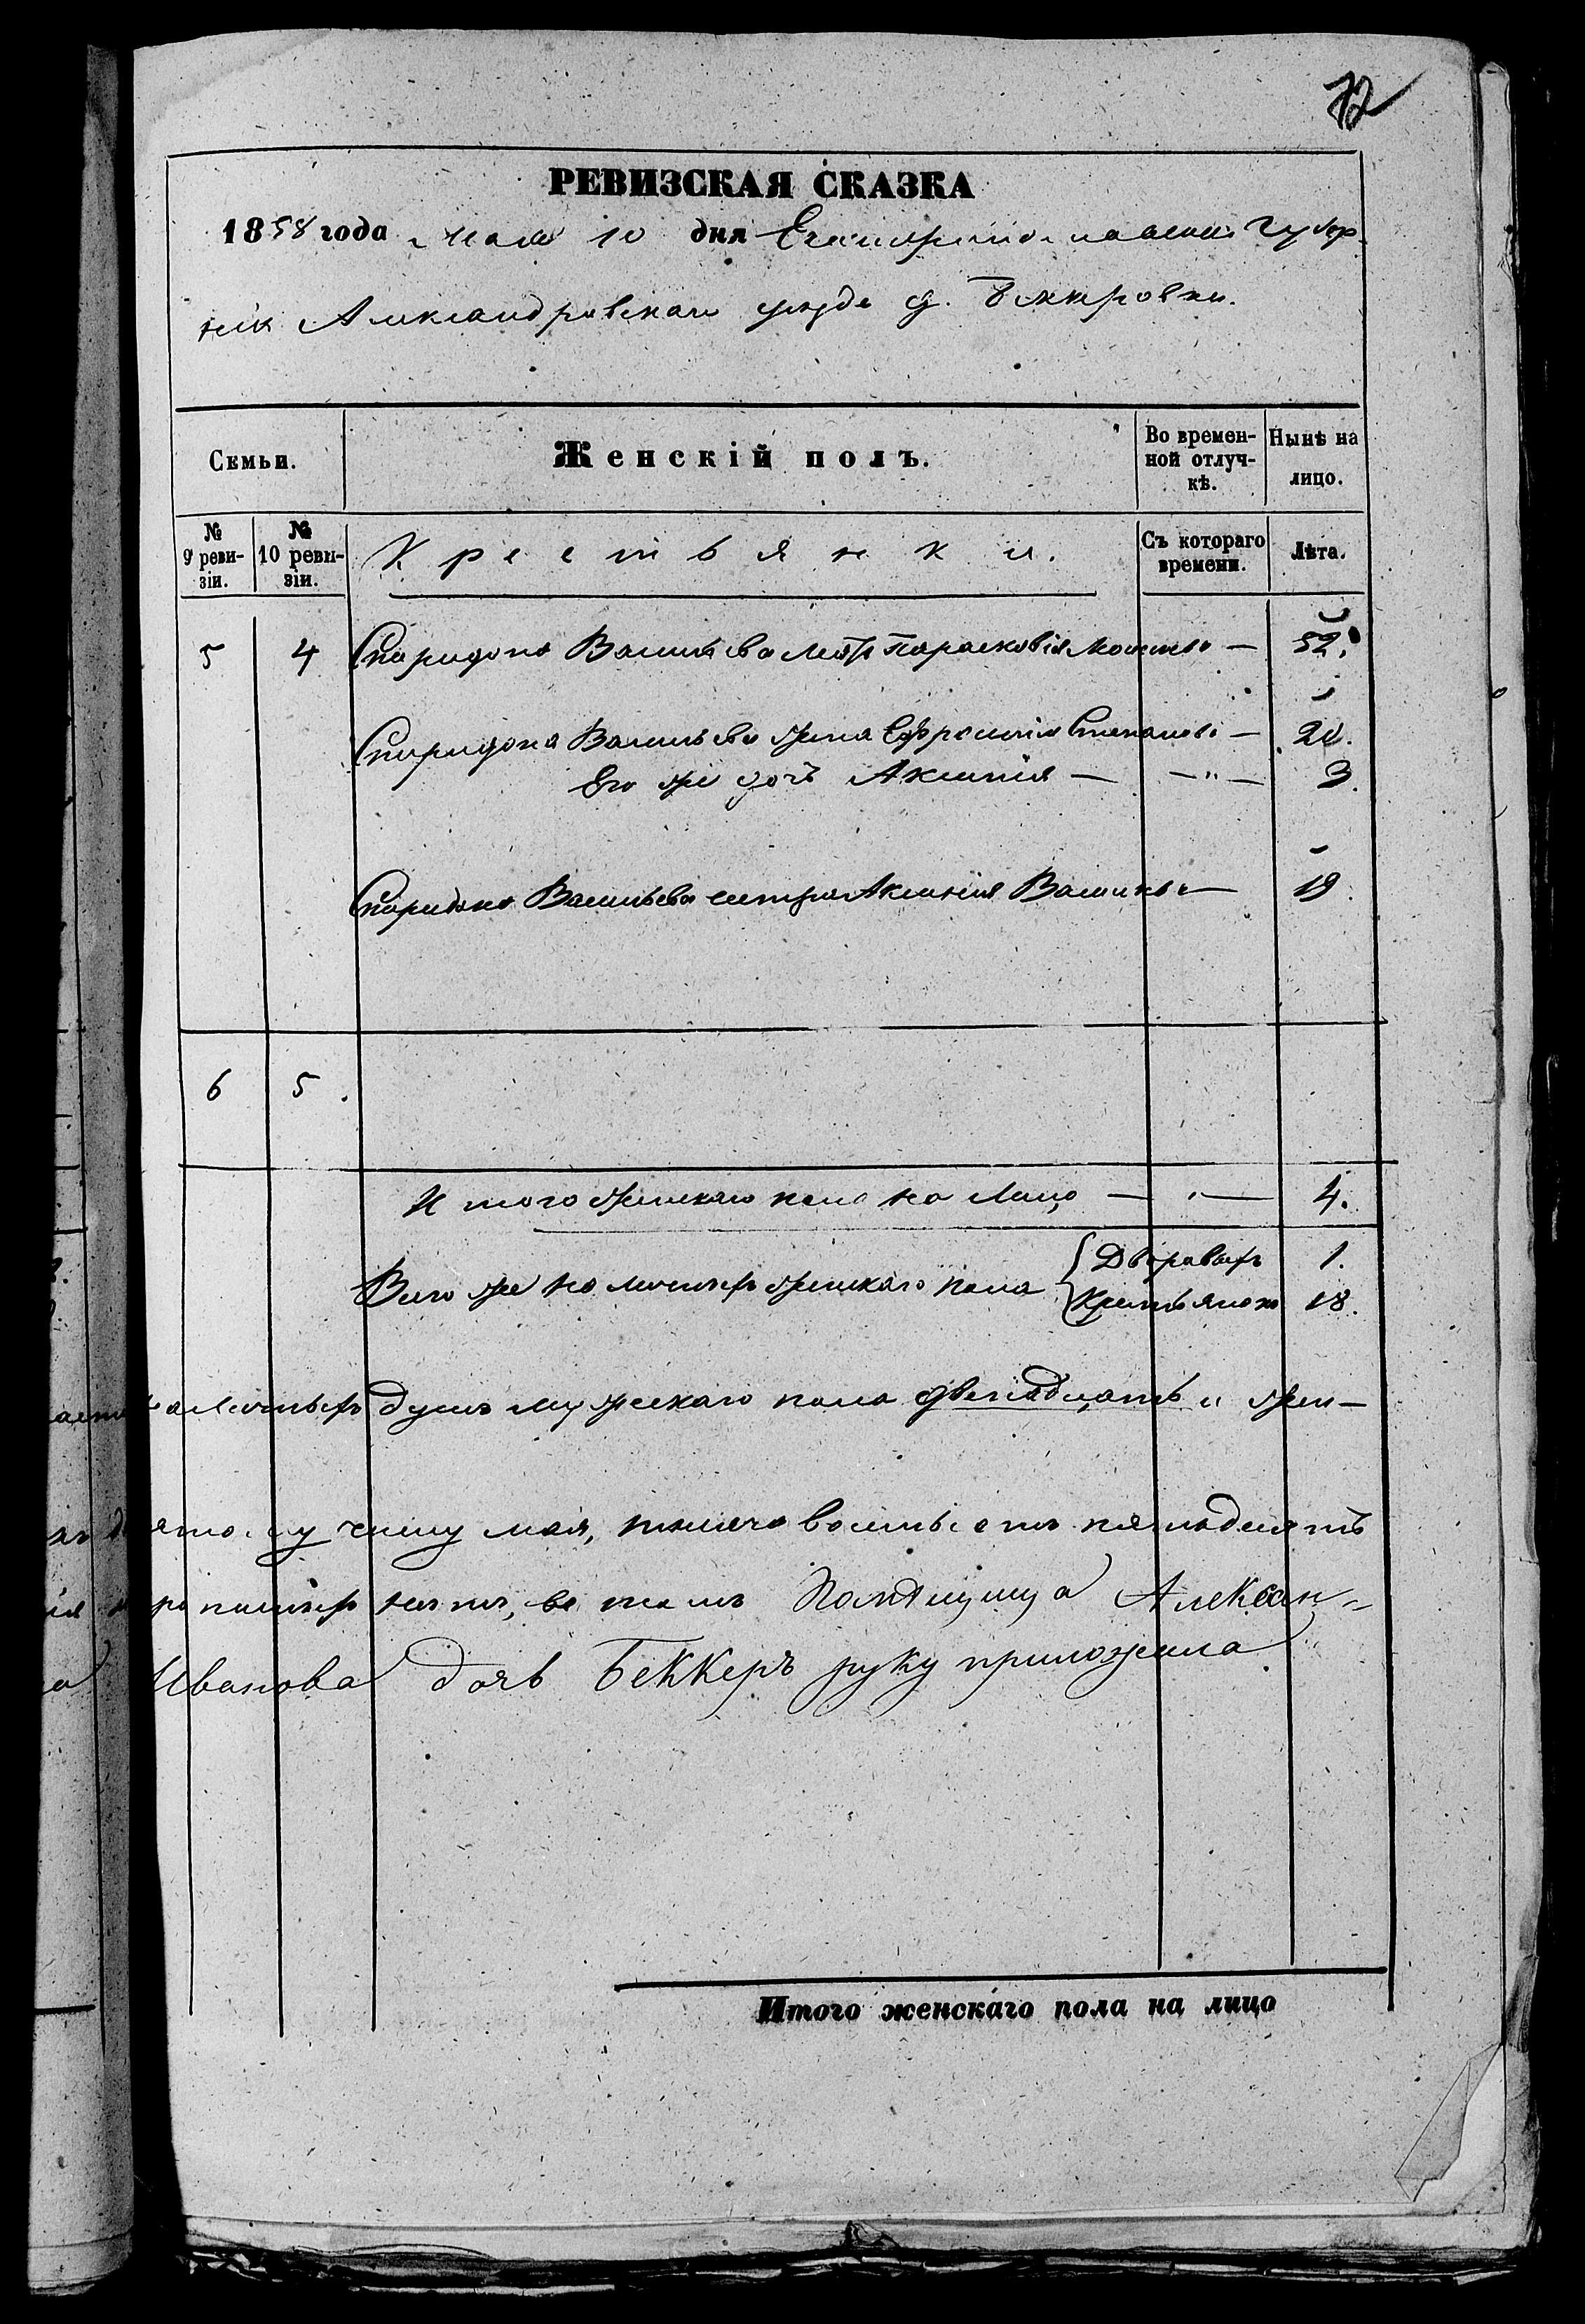 72
РЕВИЗСКАЯ СКАЗКА
1858 года Мая 10 дня Екатеринославской Губер
нии Александровскаго уезда д. Беккеровки.
Семьи. Женскій полъ. Во времен-ной отлуч-кѣ. Нынѣ на лицо.
№ 9 реви-зіи. № 10 реви-зіи. Крестьянки. Съ котораго времени. Лѣта.
5 4 Спиридона Васильева мать Парасковія — 52.
Спиридона Васильева жена Ефросинія Степанова — 20.
Его же дочь Аксинія — — " — 3.
Спиридона Васильева сестра Аксинія Васильева — 19.
6 5.
Итого женскаго пола на лицо — " — 4.
Всего же на женскаго пола { Дворовыхъ 1.
Крестьянокъ 18.
душъ мужескаго пола двенадцать и жен—
числу мая, тысяча восемьсотъ пятьдесятъ
нетъ, въ томъ Помѣщица Алексан=
Иванова дочь Беккеръ руку приложила.
Итого женскаго пола на лицо